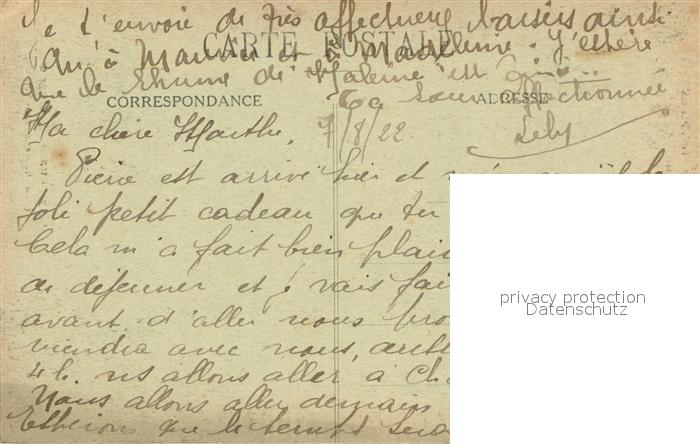 Je t'envoie de très affectueux baisers ainsi
qu'à Maman et à Madeleine. J'espère
que le rhume de est
Ta sœur affectionnée
CARTE POSTALE
CORRESPONDANCE
ADRESSE
Ma chère Marthe, 7/8/22
Pierre est arrivé hier et
joli petit cadeau que tu
Cela m'a fait bien plais
de déjeuner et je vais fai
avant d'aller nous pro
viendra avec nous,
4 h. ns allons aller à Ch
Nous allons aller demain
Espérons que le temps sera
privacy protection
Datenschutz